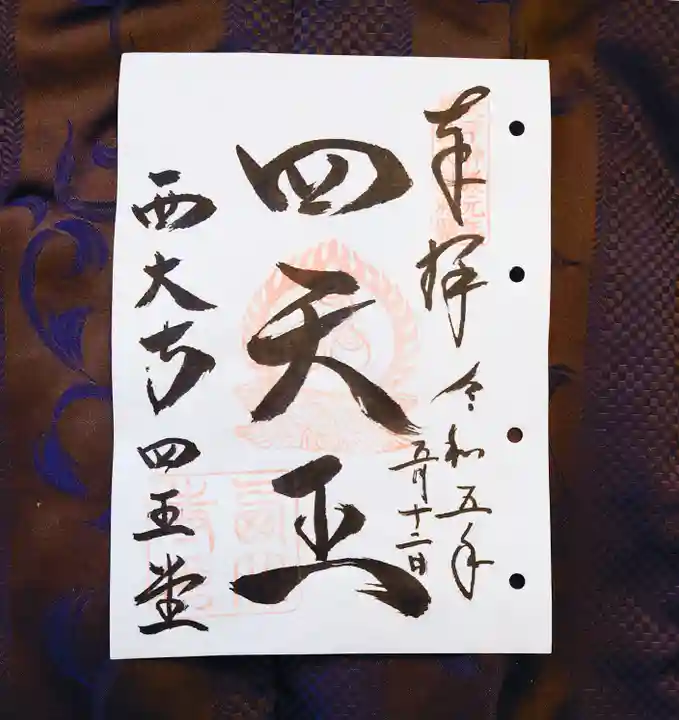 奉拝 令和五年
五月十二日
四天王
西大寺 四王堂